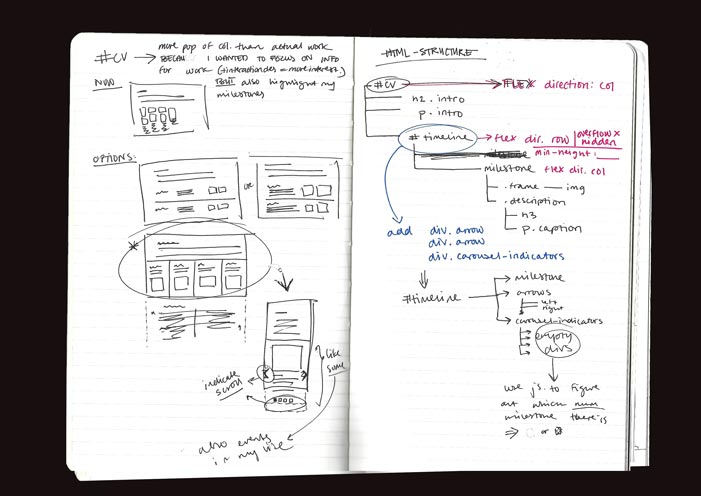 #CV → more pop of col. than actual work
I WANTED TO FOCUS ON INFO
for work (+interactiondes = more interest)
also highlight my
milestones
NOW
OPTIONS:
OR
*
indicate
scroll
like
some
also events
in my life
HTML-STRUCTURE
#CV → FLEX direction: col
h2.intro
p.intro
#timeline → flex dir. row | overflow x
hidden
min-height:
milestone flex dir. col
.frame — img
.description
h3
p.caption
add div.arrow
div.arrow
div.carousel-indicators
#timeline → milestone
→ arrows
left
right
→ carousel-indicators
empty
divs
use js. to figure
out which num
milestone there is
⇒ or